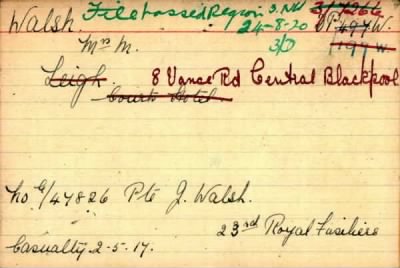 Walsh. File passed Region 3. NW 3/7266
24-8-20 DP 497 W.
Mrs M. 3/D 197 W
Leigh. 8 Vance Rd Central Blackpool
Courts Hotel
No G/47826 Pte J. Walsh.
23rd Royal Fusiliers
Casualty 2-5-17.